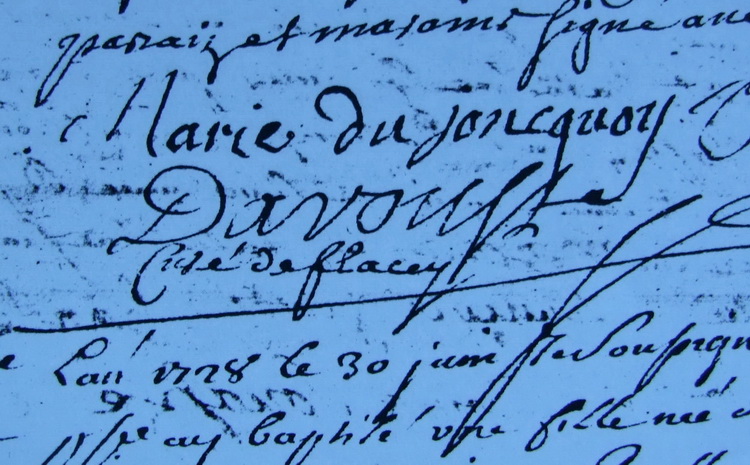 paraiz et marame signé au
Marie du joncquoy
Davoust
Curé deflacey
Lan 1728 le 30 juin Ie Soupign
ay baptisé une fille née